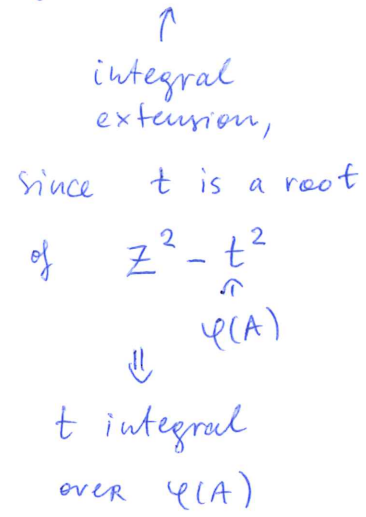 ↑
integral
extension,
since t is a root
of z² - t²
∩
φ(A)
⇓
t integral
over φ(A)